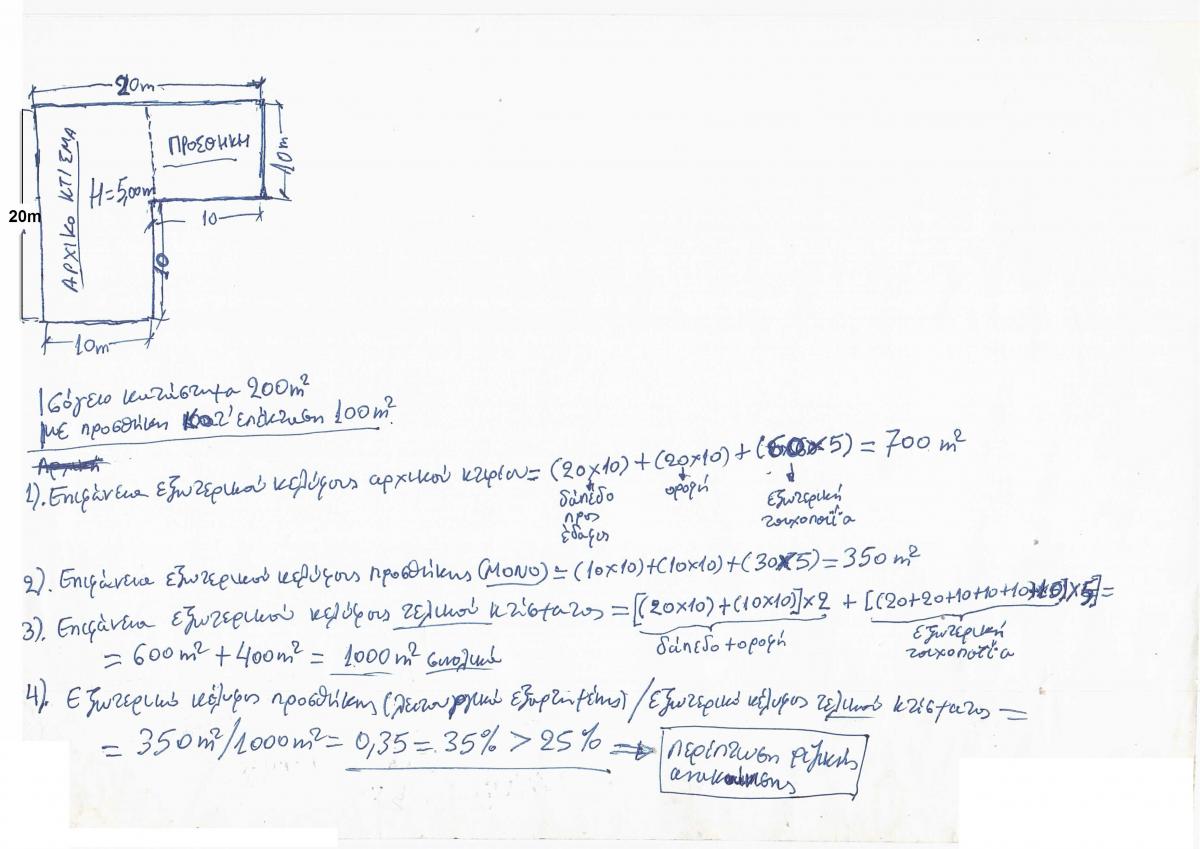 20m
ΑΡΧΙΚΟ ΚΤΙΣΜΑ
Η=5,00m
ΠΡΟΣΘΗΚΗ
10m
20m
10
10
10m
Ισόγειο κατάστημα 200m²
με προσθήκη κατ' επέκταση 100m².
1). Επιφάνεια εξωτερικού κελύφους αρχικού κτιρίου = (20x10) + (20x10) + (60x5) = 700 m²
δάπεδο προς έδαφος
οροφή
εξωτερική τοιχοποιΐα
2). Επιφάνεια εξωτερικού κελύφους προσθήκης (ΜΟΝΟ) = (10x10)+(10x10)+(30x5) = 350 m²
3). Επιφάνεια εξωτερικού κελύφους τελικού κτίσματος = [(20x10)+(10x10)]x2 + [(20+20+10+10+10+10)x5] =
δάπεδο + οροφή
εξωτερική τοιχοποιΐα
= 600m² + 400m² = 1000m² συνολικά
4). Εξωτερικό κέλυφος προσθήκης (λειτουργικά εξαρτημένης) / Εξωτερικό κέλυφος τελικού κτίσματος =
= 350m²/1000m² = 0,35 = 35% > 25% ⇒ περίπτωση ριζικής
ανακαίνισης